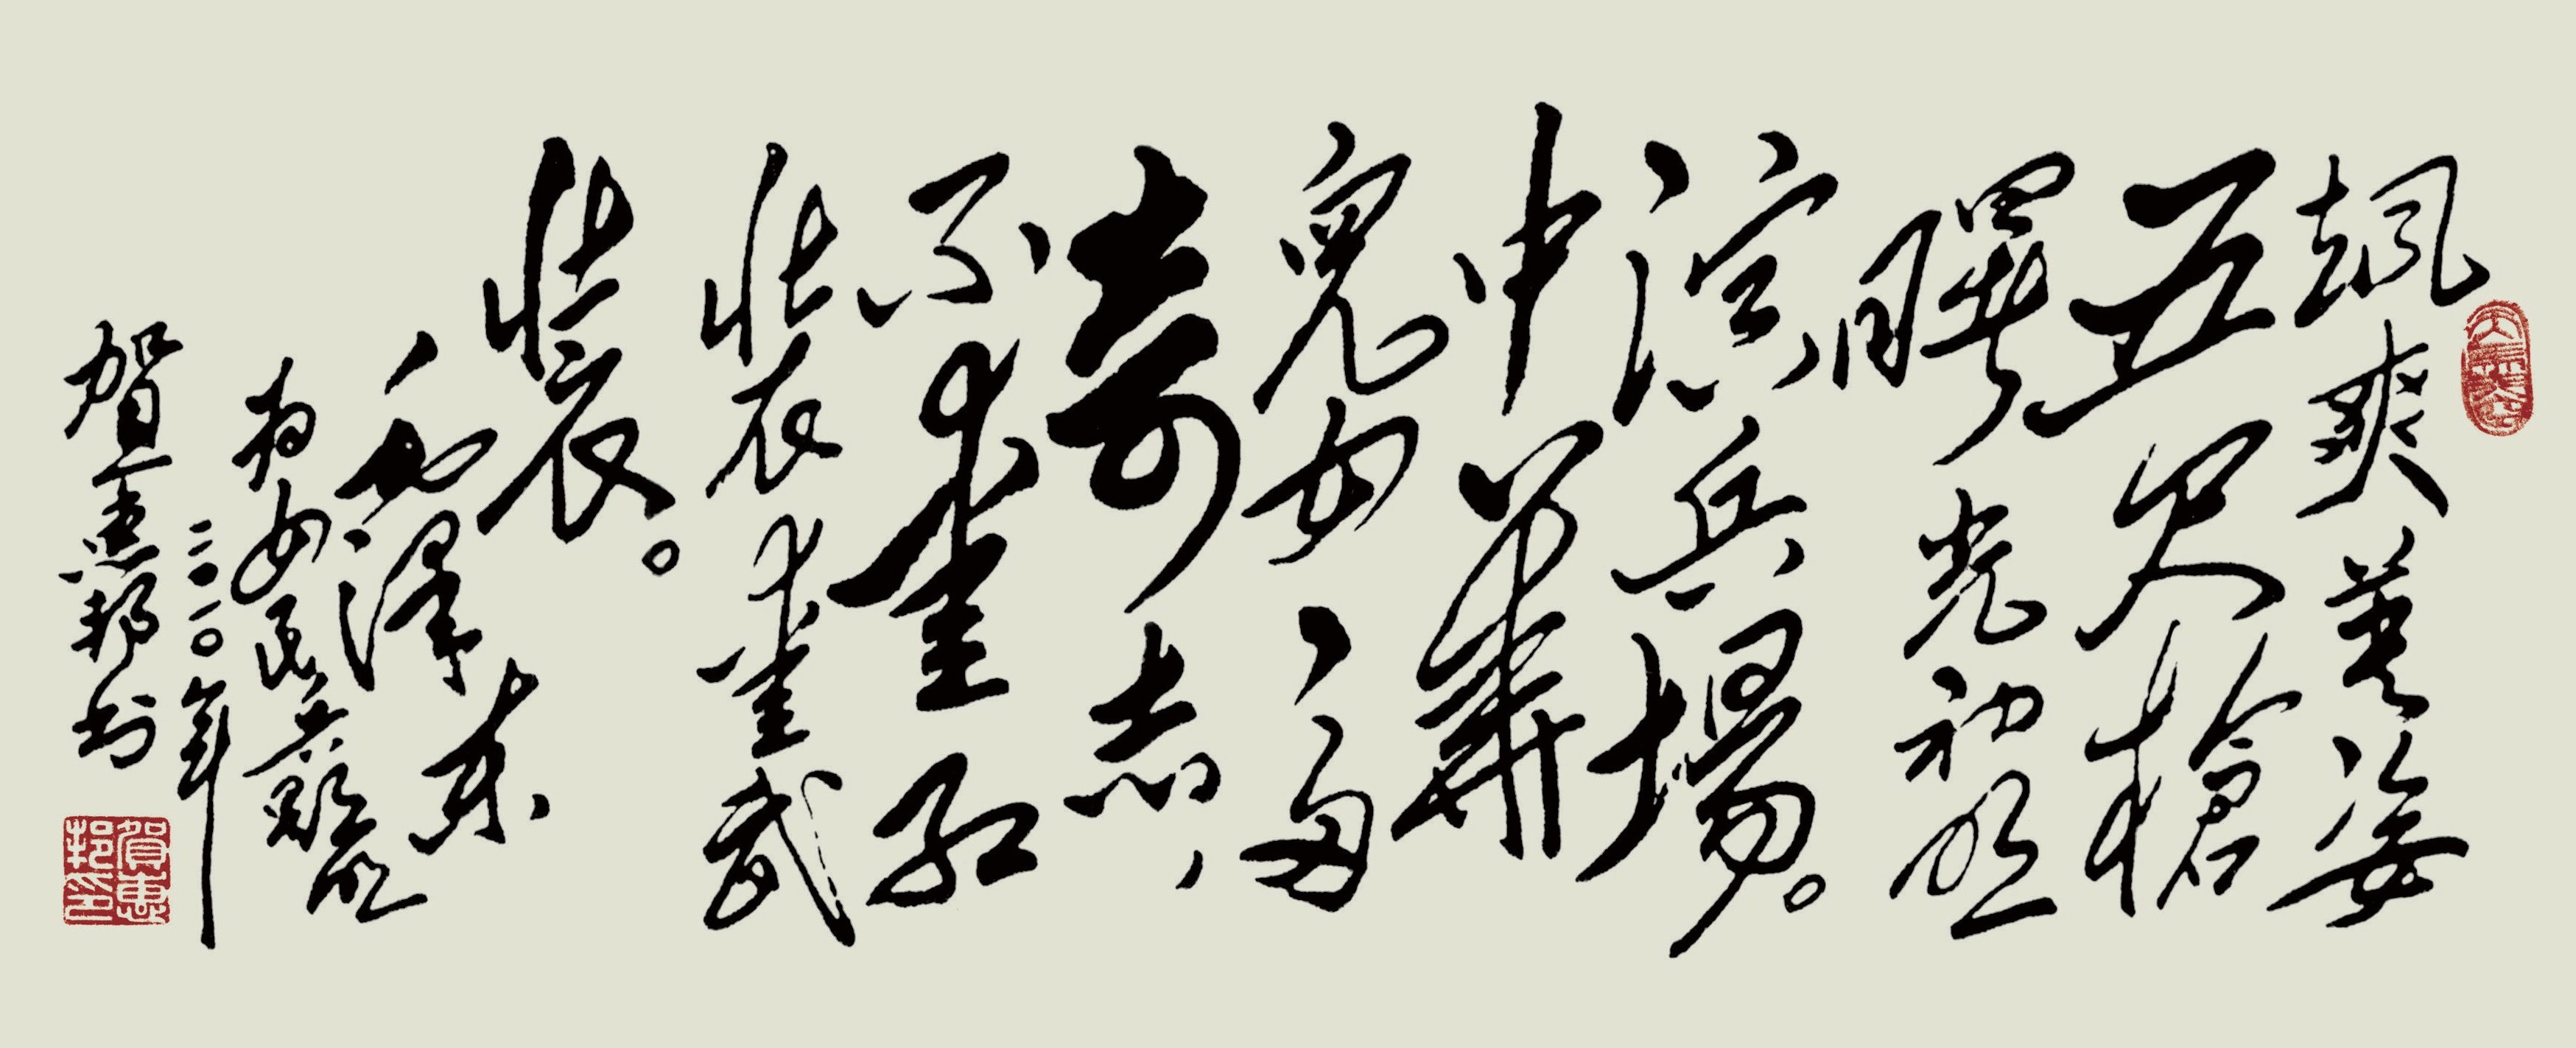 颯爽英姿
五尺槍
曙光初照
演兵場。
中華
兒女多
奇志，
不愛红
裝愛武
裝。
毛澤東
为女民兵题照
二〇一〇年
贺惠邦书
賀惠邦印